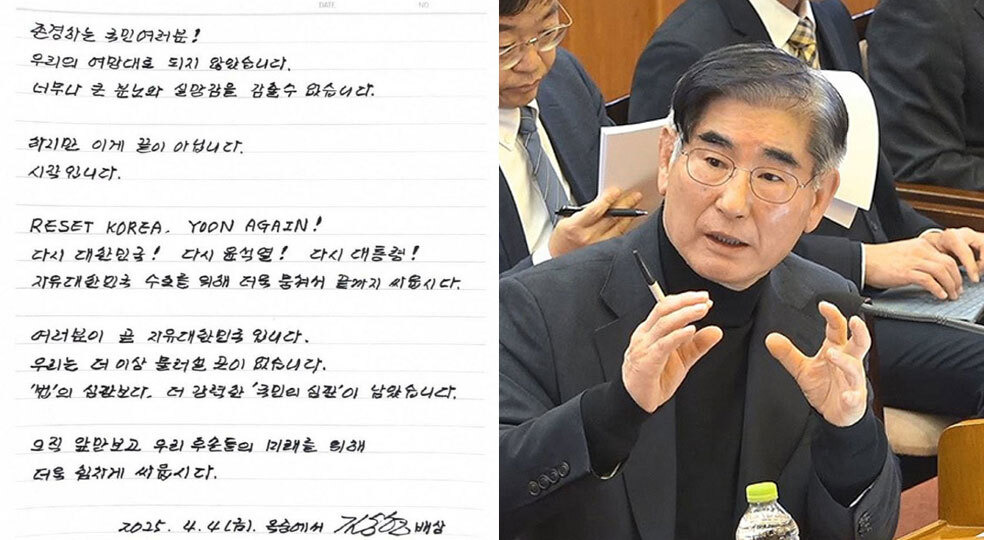 DATE NO
존경하는 국민여러분!
우리의 여망대로 되지 않았습니다.
너무나 큰 분노와 실망감을 감출수 없습니다.
하지만 이게 끝이 아닙니다.
시작입니다.
RESET KOREA. YOON AGAIN!
다시 대한민국! 다시 윤석열! 다시 대통령!
자유대한민국 수호를 위해 더욱 뭉쳐서 끝까지 싸웁시다.
여러분이 곧 자유대한민국 입니다.
우리는 더 이상 물러설 곳이 없습니다.
'법'의 심판보다. 더 강력한 '국민의 심판'이 남았습니다.
오직 앞만보고 우리 후손들의 미래를 위해
더욱 힘차게 싸웁시다.
2025. 4. 4(금). 옥중에서 배상